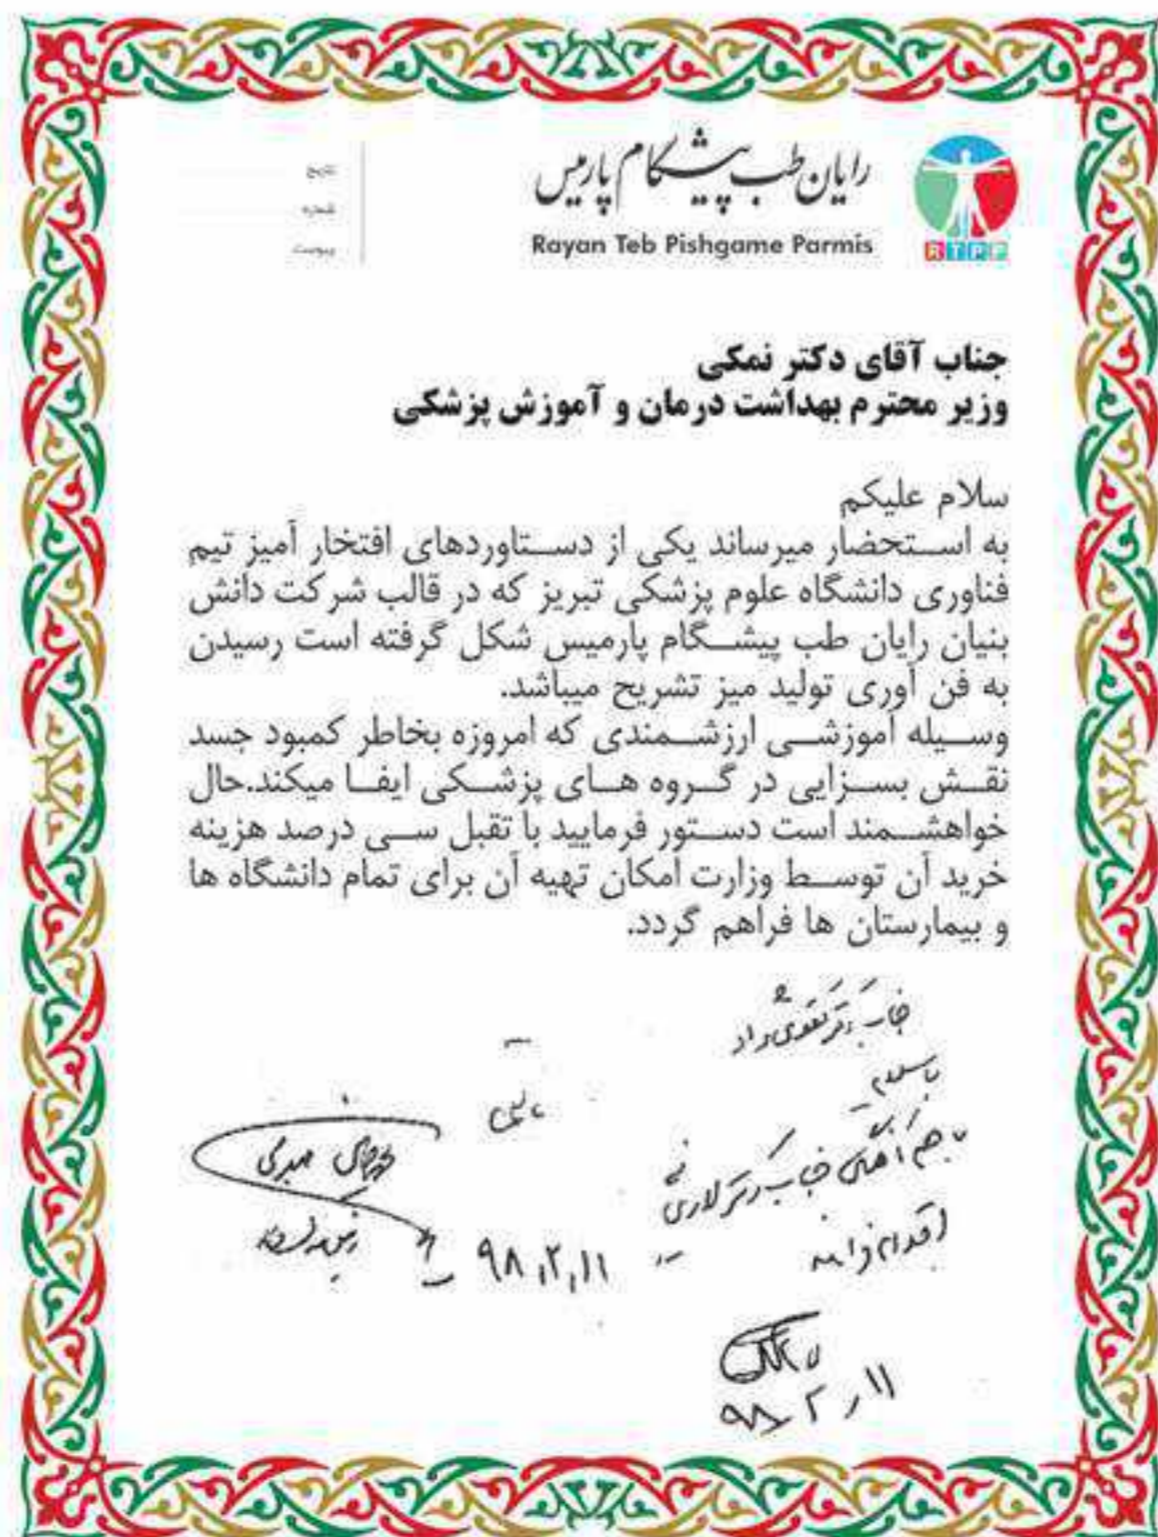 رایان طب پیشگام پارمیس
Rayan Teb Pishgame Parmis
RTPP
تاریخ
شماره
پیوست
جناب آقای دکتر نمکی
وزیر محترم بهداشت درمان و آموزش پزشکی
سلام علیکم
به استحضار میرساند یکی از دستاوردهای افتخار آمیز تیم
فناوری دانشگاه علوم پزشکی تبریز که در قالب شرکت دانش
بنیان رایان طب پیشگام پارمیس شکل گرفته است رسیدن
به فن آوری تولید میز تشریح میباشد.
وسیله آموزشی ارزشمندی که امروزه بخاطر کمبود جسد
نقش بسزایی در گروه های پزشکی ایفا میکند.حال
خواهشمند است دستور فرمایید با تقبل سی درصد هزینه
خرید آن توسط وزارت امکان تهیه آن برای تمام دانشگاه ها
و بیمارستان ها فراهم گردد.
جناب دکتر
باسلام
جناب دکتر لاریجانی
اقدام
۹۸,۲,۱۱
۹۸,۲,۱۱